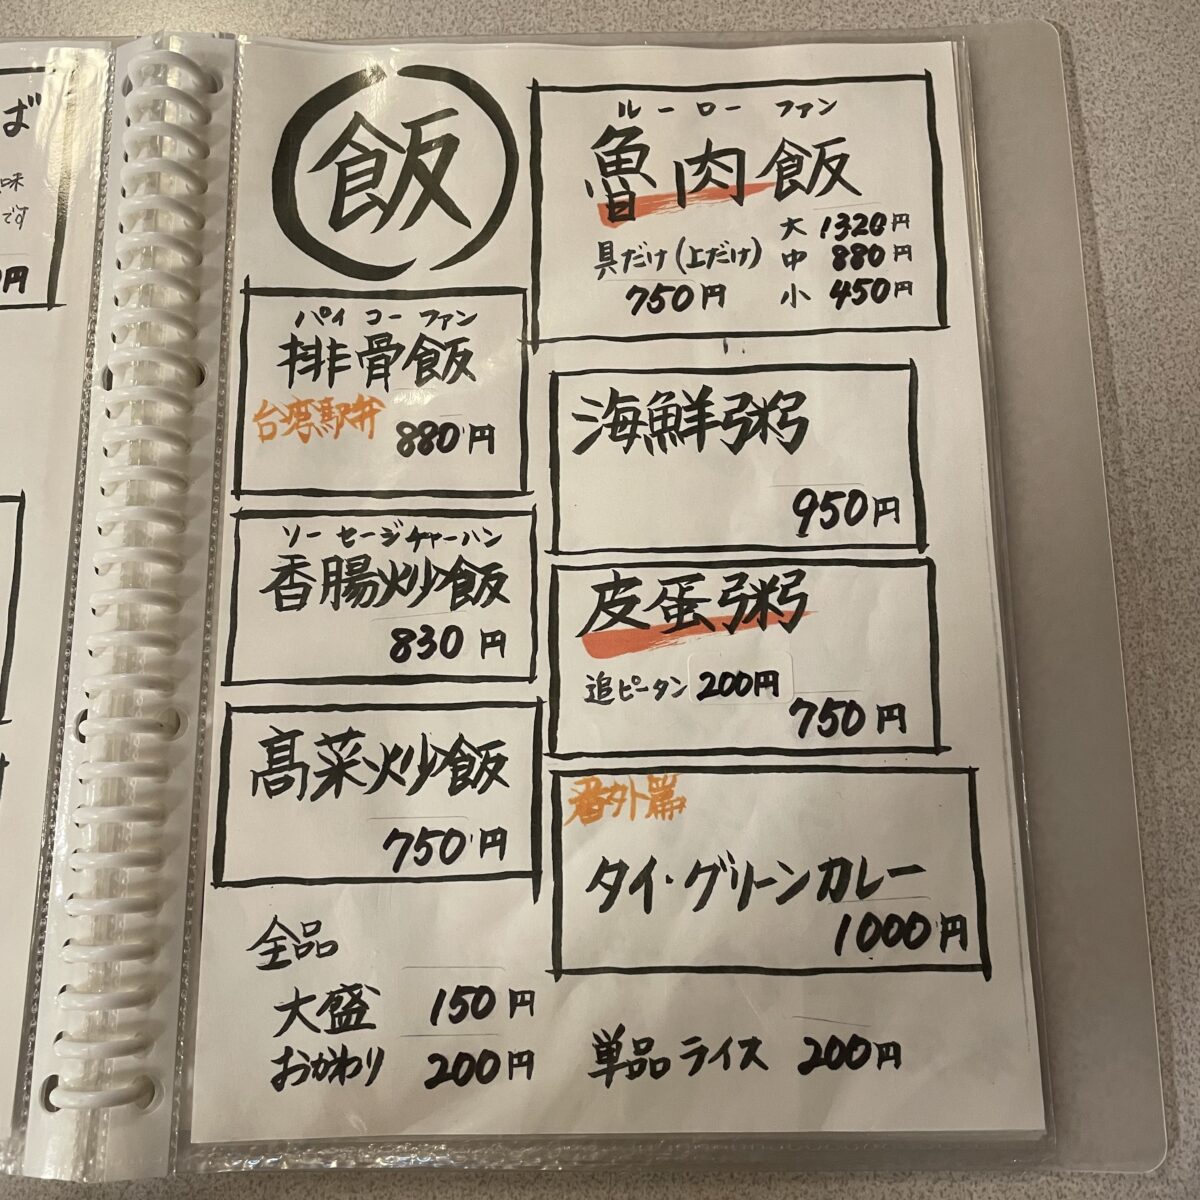 飯
ルーローファン
魯肉飯
大 1320円
具だけ(上だけ) 中 880円
750円 小 450円
パイコーファン
排骨飯
台湾駅弁
880円
海鮮粥
950円
ソーセージチャーハン
香腸炒飯
830円
皮蛋粥
追ピータン 200円
750円
高菜炒飯
750円
番外篇
タイ・グリーンカレー
1000円
全品
大盛 150円
おかわり 200円
単品ライス 200円
ば
味
です
円